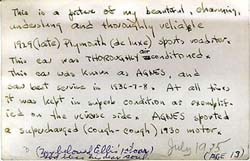 This is a picture of my beautiful, charming,
underslung and thoroughly reliable
1929 (late) Plymouth (de luxe) sports roadster.
This car was THOROUGHLY air conditioned.
This car was known as AGNES and
saw best service in 1936-7-8. At all times
it was kept in superb condition as exemplifi-
ed on the verious side. AGNES sported
a supercharged (cough cough) 1930 motor.
July 1935
PAGE 13